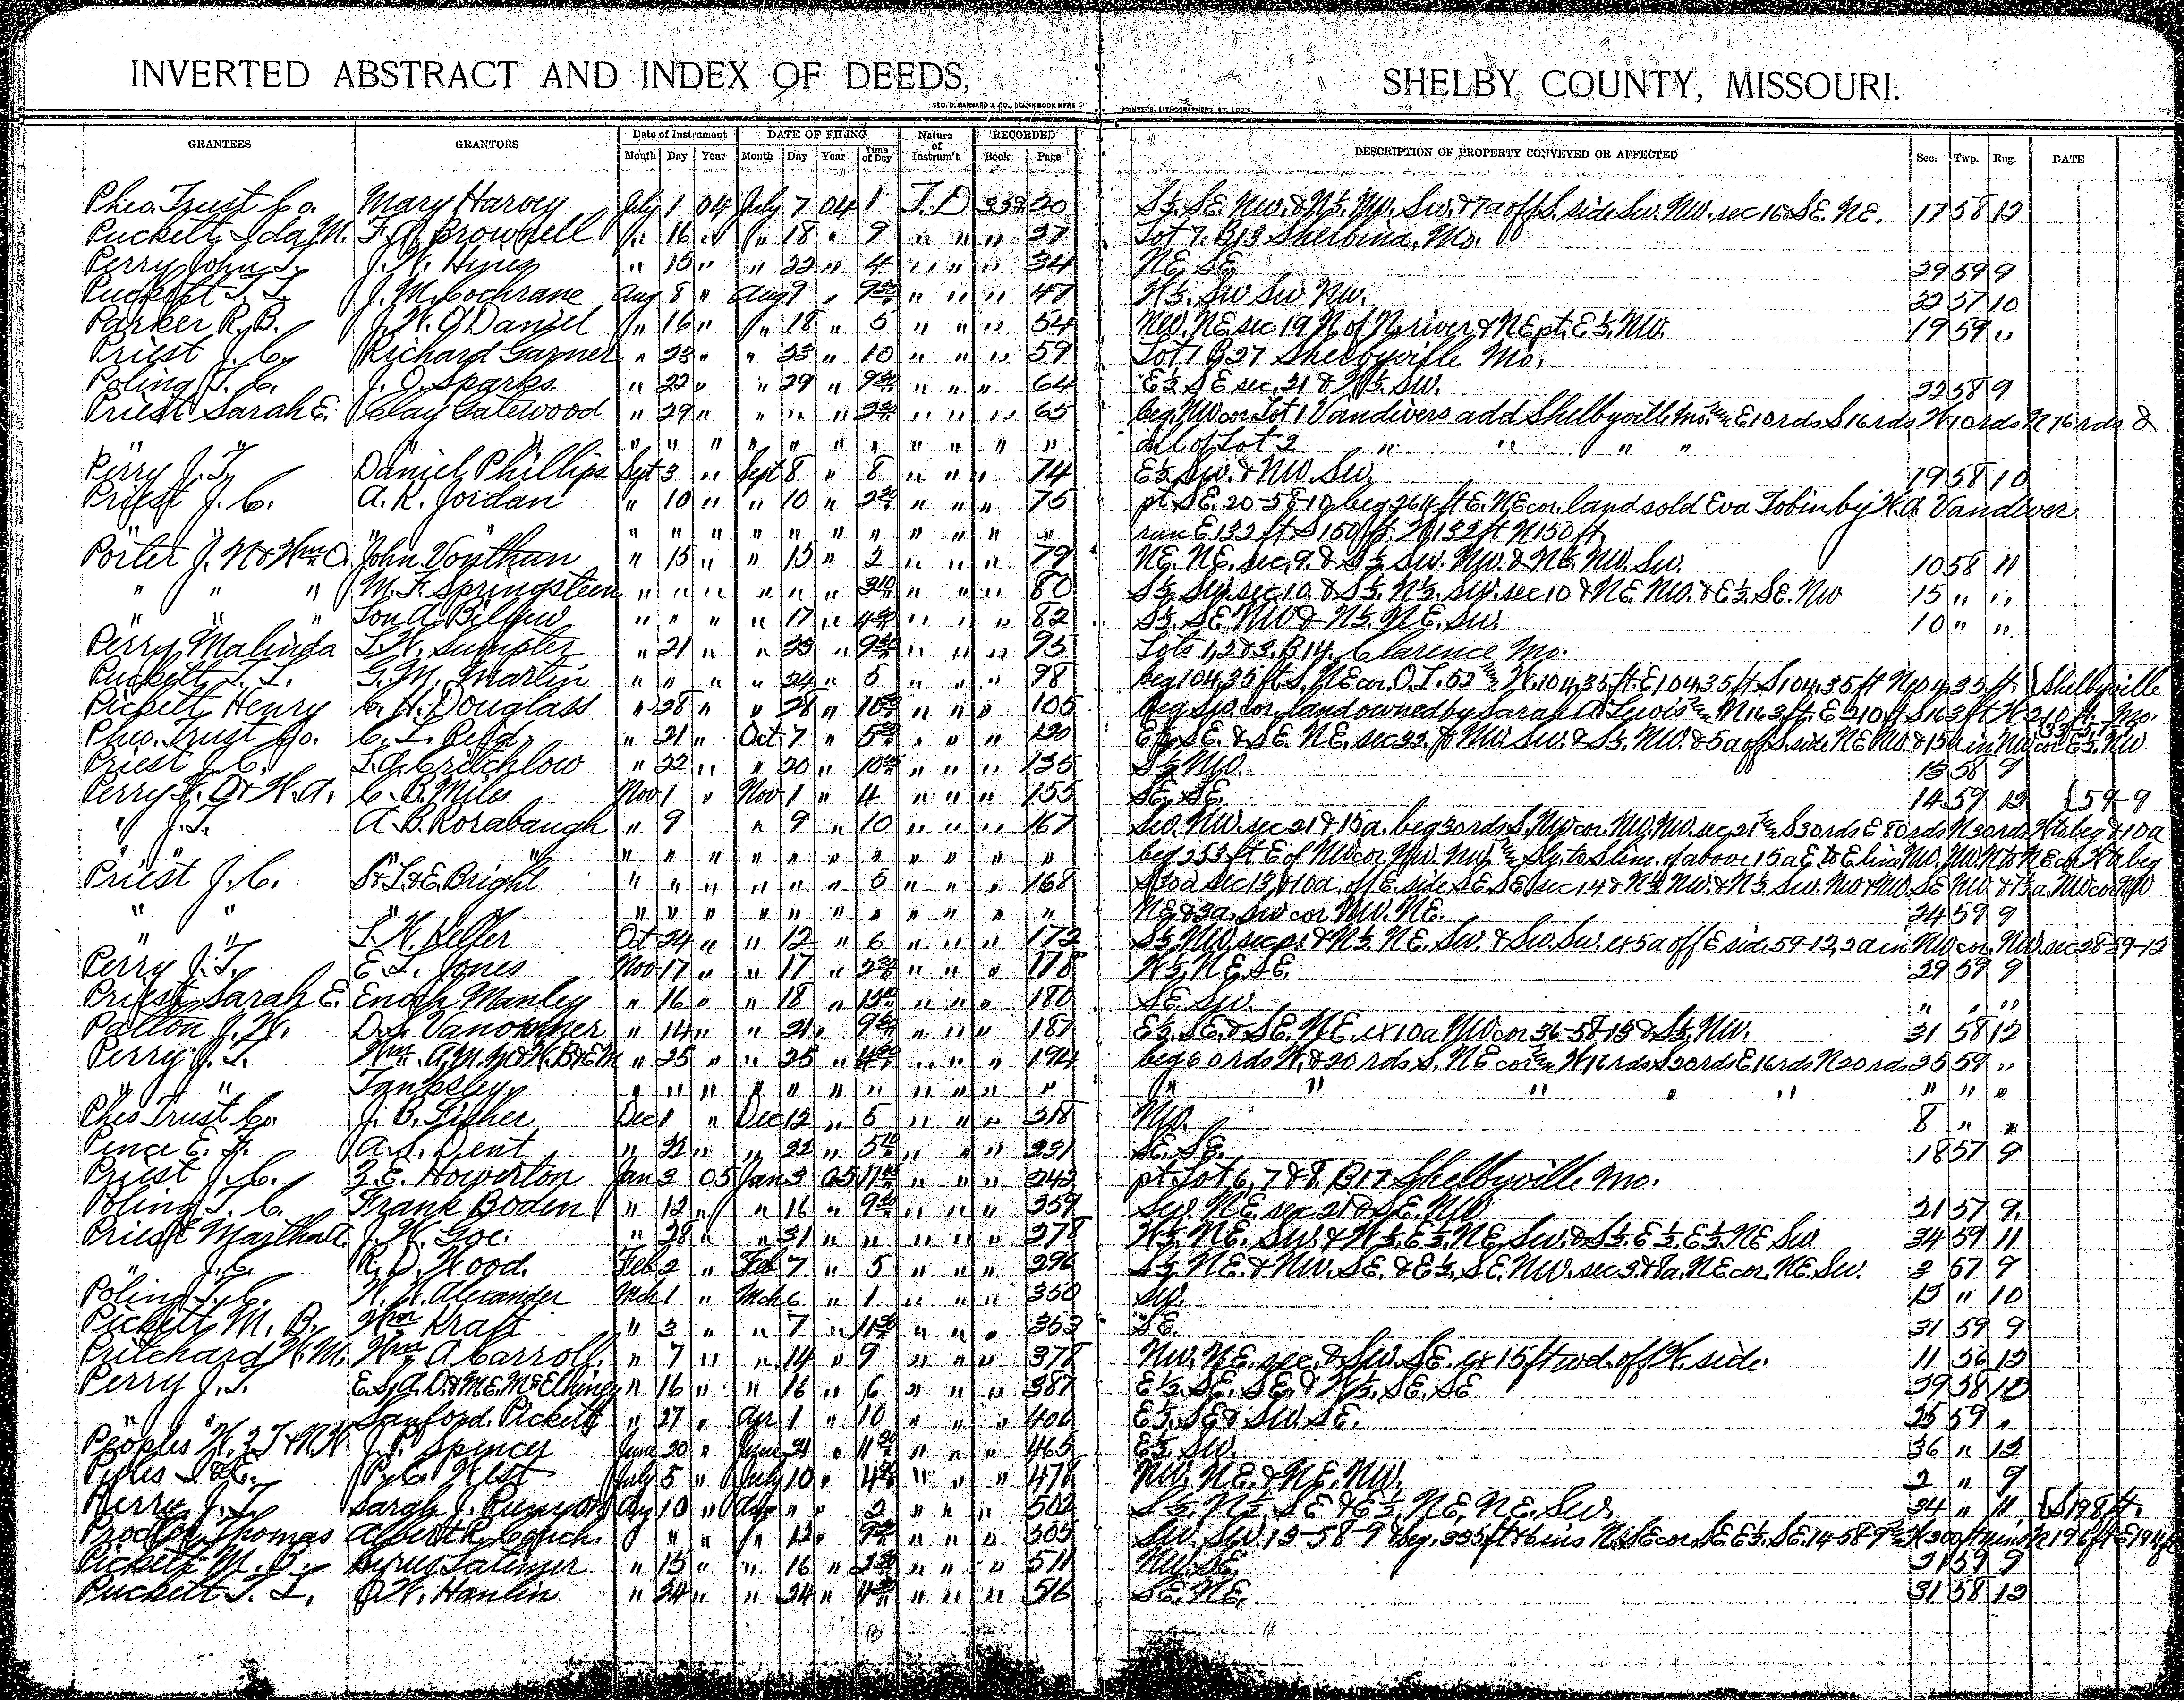 INVERTED ABSTRACT AND INDEX OF DEEDS, SHELBY COUNTY, MISSOURI.
GEO. D. BARNARD & CO., BLANK BOOK MFRS PRINTERS, LITHOGRAPHERS, ST. LOUIS.
GRANTEES GRANTORS Date of Instrument DATE OF FILING Nature of Instrum't RECORDED DESCRIPTION OF PROPERTY CONVEYED OR AFFECTED Sec. Twp. Rng. DATE
Month Day Year Month Day Year Time of Day Book Page
Pheo. Trust Co. Mary Harvey July 1 04 July 7 04 1 T.D 339 20 S½ SE. NW. & N½ NW. SW. & 7a off S. side SW. NW. sec 16 & SE. NE. 17 58 12
Puckett Ida M. F. A. Brownell " 16 " " 18 " 9 " " " 27 Lot 7. B13 Shelbina, Mo.
Perry John S. J. W. Hines " 15 " " 22 " 4 " " " 34 NE. SE. 29 59 9
Puckett T. L. J. M. Cochrane Aug 8 " Aug 9 " 9 " " " 47 W½. SW SW NW. 32 57 10
Parker R. B. J. W. O'Daniel " 16 " " 18 " 5 " " " 54 NW. NE sec 19 N of N river & NE pt. E½. NW. 19 59 "
Priest J. C. Richard Garner " 23 " " 23 " 10 " " " 59 Lot 7 B27 Shelbyville Mo.
Poling T. C. J. O. Sparks " 22 " " 29 " 9 " " " 64 E½ SE sec. 21 & W½ SW. 22 58 9
Priest Sarah E. Clay Gatewood " 29 " " " " 2 " " " 65 beg. NW cor Lot 1 Vandivers add Shelbyville Mo. E 10 rds S 16 rds W 10 rds N 16 rds &
" " " " " " " " " " " " " " all of Lot 2 " " " "
Perry J. T. Daniel Phillips Sept 3 " Sept 8 " 8 " " " 74 E½ SW. & NW. SW. 19 58 10
Priest J. C. A. K. Jordan " 10 " " 10 " 2 " " " 75 pt SE. 20-58-10 beg 264 ft E. NE cor. land sold Eva Tobin by W. A. Vandiver
" " " " " " " " " " " " " run E 132 ft S 150 ft. W 132 ft N 150 ft
Porter J. N & Wm O. John Vonthun " 15 " " 15 " 2 " " " 79 NE. NE. sec. 9. & S½ SW. NW. & N½. NW. SW. 10 58 11
" " " M. F. Springsteen " " " " " " 3 " " " 80 S½ SW. sec 10. & S½. N½. SW. sec 10 & NE. NW. & E½. SE. NW 15 " "
" " " Lon A. " " " " 17 " 4 " " " 82 S½. SE. NW & N½. NE. SW. 10 " "
Perry Malinda L. W. Sumpter " 21 " " 23 " 9 " " " 95 Lots 1, 2 & 3. B14. Clarence Mo.
Puckett T. L. G. M. Martin " " " " 24 " 5 " " " 98 beg 104.35 ft. S. NE cor. O. L. 55 W. 104.35 ft. E 104.35 ft. S 104.35 ft N 104.35 ft. {Shelbyville
Pickett Henry C. H. Douglass " 28 " " 28 " 10 " " " 105 beg SW. cor. land owned by Sarah A Lewis N 163 ft. E 210 ft S 163 ft W 210 ft. Mo.
Pheo. Trust Co. C. L. " 21 " Oct 7 " 5 " " " 120 SE. & SE. NE. sec 32. & NW. SW. & S½. NW. & 5a off S. side NE NW & 15a in NW cor E½. NW
Priest J. C. L. A. Critchlow " 22 " " 20 " 10 " " " 135 S½ NW. 13 58 9
Perry F. O & W. A. C. B. Miles Nov 1 " Nov 1 " 4 " " " 155 SE. SE. 14 59 12 {59-9
" J. T. A. B. Rorabaugh " 9 " 9 " 10 " " " 167 SW. NW. sec 21 & 15a. beg 30 rds S. NW cor. NW. NW. sec. 21 S 30 rds E 80 rds N 30 rds W to beg & 10a
" " " " " " " " " " " " beg 253 ft E of NW cor NW. NW. Sly. to S line of above 15a E to E line NW. NW. N to NE cor W to beg
Priest J. C. S & L & E. Bright " " " " " " 5 " " " 168 sec 13, & 10a. off E. side SE. SE. sec 14 & N½ NW. & N½. SW. NW & NW. SE NW. & 1½a. NW cor NW
" " " " " " " " " " " " " NE. & 3a. SW cor NW. NE. 24 59 9
" " L. H. Keller Oct 24 " " 12 " 6 " " " 172 S½ NW. sec & N½. NE. SW. & SW. SW. ex 5a off E side 59-12, 2a in NW cor. NW. sec 28-59-12
Perry J. T. E. L. Jones Nov 17 " " 17 " 2 " " " 178 W½. NE. SE. 29 59 9
Priest Sarah E. Enoch Manley " 16 " " 18 " " " " 180 SE. SW. " " "
Patton J. W. D. S. Vanosdoner " 14 " " 21 " 9 " " " 187 E½. SE. & SE. NE. ex 10a NW cor 36-58-13 & S½. NW. 31 58 12
Perry J. T. Wm. A. M. " 25 " " 25 " 4 " " " 194 beg 60 rds W. & 20 rds S. NE cor W 16 rds S 20 rds E 16 rds N 20 rds 25 59 "
" " Tanksley " " " " " " " " " " " " " " " " " " "
Pheo Trust Co. J. B. Fisher Dec 1 " Dec 12 " 5 " " " 218 NW. 8 " "
Pence E. F. A. S. Dent " 22 " " 22 " 5 " " " 231 SE. SE. 18 57 9
Priest J. C. Z. E. Howerton Jan 3 05 Jan 3 05 " " " 243 pt. Lot 6, 7 & 8. B17 Shelbyville Mo.
Poling T. C. Frank Boden " 12 " " 16 " 9 " " " 259 SW. NE. sec 21 & SE. NW 21 57 9
Priest Martha A. J. W. Goe. " 28 " " 31 " " " " " 278 W½. NE. SW. & W½. E½. NE. SW. & S½. E½. E½. NE SW. 34 59 11
" J. C. R. D. Wood. Feb 2 " Feb 7 " 5 " " " 296 S½. NE. & NW. SE. & E½. SE. NW. sec 3 & 7a. NE cor. NE. SW. 3 57 9
Poling T. C. W. H. Alexander Mch 1 " Mch 6 " 1 " " " 350 SW. 13 " 10
Pickett M. B. Wm Kraft " 3 " " 7 " 11 " " " 353 SE. 31 59 9
Pritchard W. M. Wm A Carroll. " 7 " " 14 " 9 " " " 378 NW. NE. sec. & SW. SE. ex 15 ft wd. off W. side. 11 56 12
Perry J. T. E. S, A. D. & M. E. McElhiney " 16 " " 16 " 6 " " " 387 E½. SE. SE. & W½. SE. SE 29 58 10
" " Sanford Pickett " 27 " Apr 1 " 10 " " " 406 E½. SE & SW. SE. 25 59 "
Peoples J. P. Spencer June 20 " June 21 " 11 " " " 465 E½. SW. 36 " 12
Pyles P. C. West July 5 " July 10 " 4 " " " 478 NW. NE. & NE. NW. 2 " 9
Perry J. T. Sarah J. Runyon Aug 10 " Aug " " 2 " " " 502 S½. N½. SE & E½. NE. NE. SW. 34 " 11 {S 198 ft.
Thomas Albert R. Couch. " " " " 12 " 9 " " " 505 SW. SW. 13-58-9 & beg. 335 ft 6 ins N. SE cor. SE E½. SE. 14-58-9
Pickett M. B. Cyrus Latimer " 15 " " 16 " 2 " " " 511 NW. SE. 31 59 9
Puckett T. L. J. W. Hanlin " 24 " " 24 " 4 " " " 516 SE. NE. 31 58 12